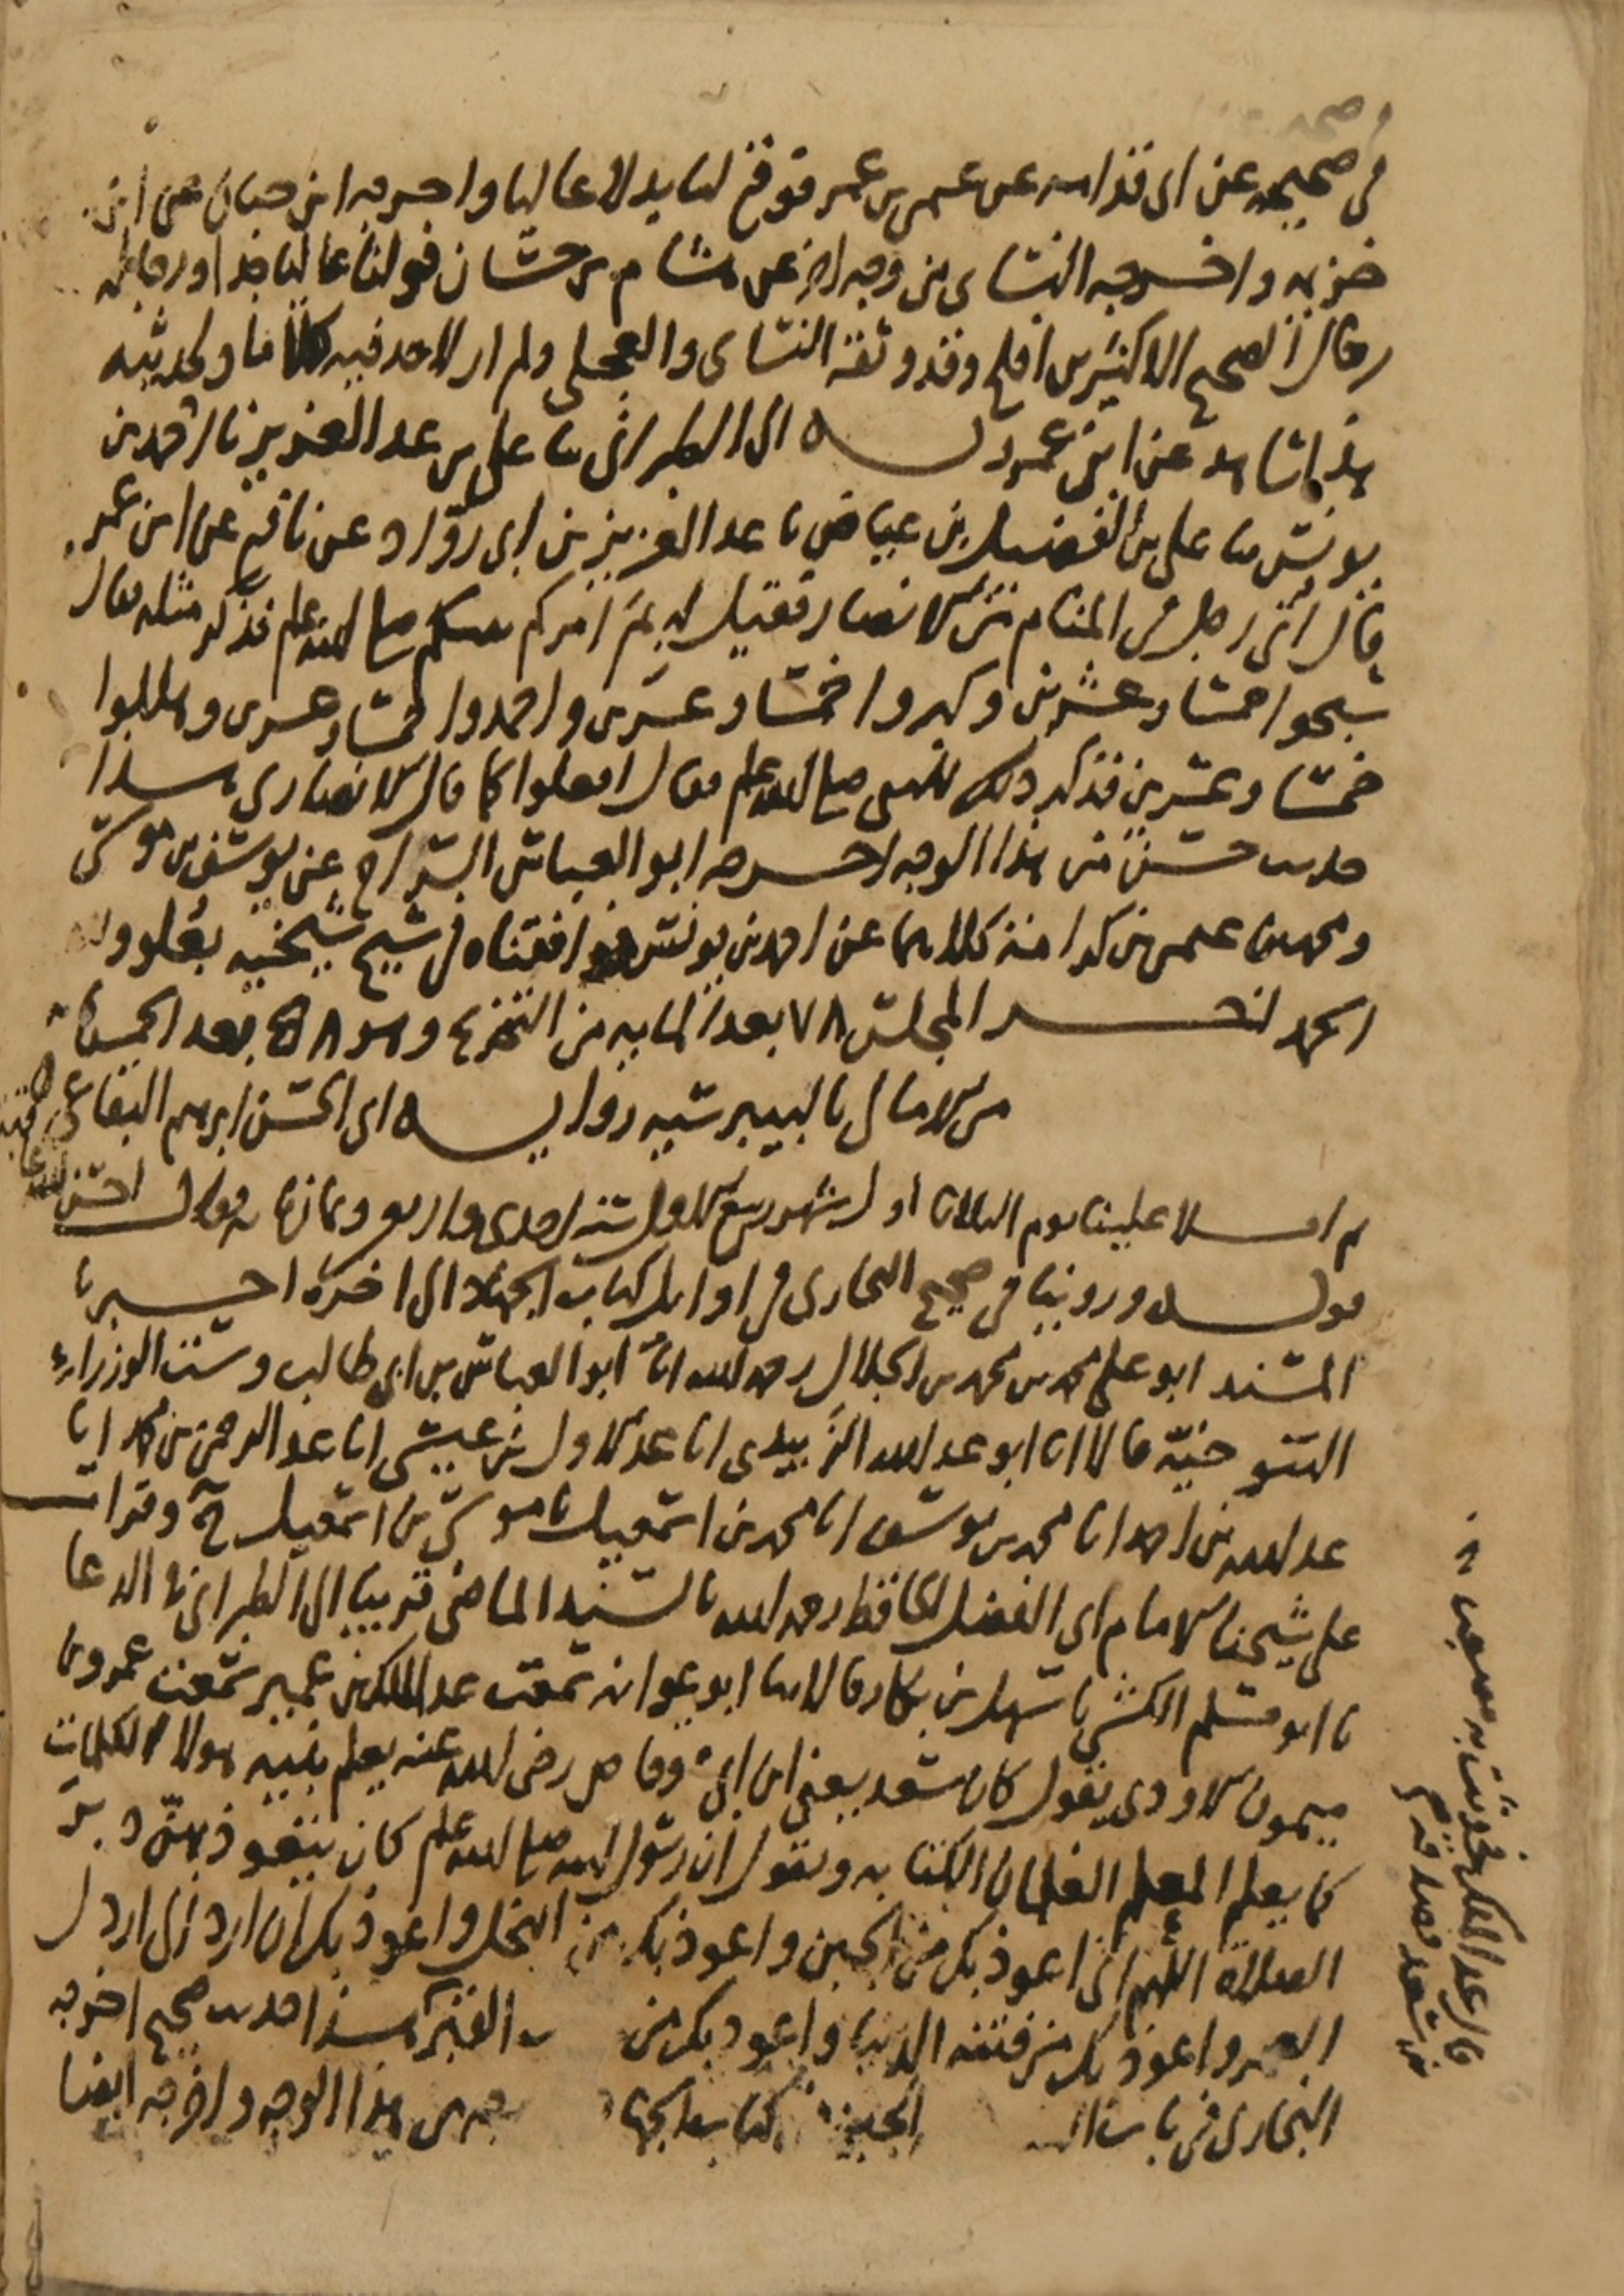 في صحيحه عن ابي قدامه عن عثمن بن عمر فوقع لنا بدلا عاليا واخرجه ابن حبان عن ابن
خزيمه واخرجه النسائ من وجه اخر عن هشام بن حسان فوقع لنا عاليا جدا ورجاله
رجال الصحيح الا كثير بن افلح وقد وثقه النسائ والعجلي ولم ار لاحد فيه كلاما ولحديثه
هذا شاهد عن ابن عمر وبه الى الطبراني نا علي بن عبد العزيز نا احمد بن
يونس نا علي بن الفضيل بن عياض نا عبد العزيز بن ابي روّاد عن نافع عن ابن عمر
قال اُتي رجل في المنام من الانصار فقيل له بمَ امركم نبيكم صلى الله عليه وسلم فذكر مثله فقال
سبحوا خمسا وعشرين وكبروا خمسا وعشرين واحمدوا خمسا وعشرين وهللوا
خمسا وعشرين فذكر ذلك للنبي صلى الله عليه وسلم فقال افعلوا كما قال الانصاري هذا
حديث حسن من هذا الوجه اخرجه ابو العباس السراج عن يوسف بن موسى
ومحمد بن عثمن بن كرامة كلاهما عن احمد بن يونس فوافقناه في شيخ شيخيه بعلو ولله
الحمد اخر المجلس ٧٨ بعد المايه من التخريج وهو ٥٨ بعد الخمسمائة
من الامالي بالبيبرسيه رواية ابي الحسن ابرهيم البقاعي
ثم املا علينا يوم الثلاثا اول شهر ربيع الاول سنه احدى واربعين وثمانمايه فقال احسن الله عاقبته
قوله وروينا في صحيح البخارى في اوايل كتاب الجهاد الى اخره اخبرنا
المسند ابو علي محمد بن محمد بن الجلال رحمه الله انا ابو العباس بن ابي طالب وست الوزراء
التنوخيّة قالا انا ابو عبد الله الزَّبيدى انا عبد الاول بن عيسى انا عبد الرحمن بن محمد انا
عبد الله بن احمد انا محمد بن يوسف انا محمد بن اسمعيل نا موسى بن اسمعيل ح وقرات
على شيخنا الامام ابي الفضل الحافظ رحمه الله بالسند الماضي قريبا الى الطبراني في الدعا
نا ابو مسلم الكشي نا سهل بن بكار قالا نا ابو عوانه سمعت عبد الملك بن عمير سمعت عمرو بن
ميمون الاودى يقول كان سعد يعني ابن ابي وقاص رضي الله عنه يعلم بنيه هولا الكلمات
كما يعلم المعلم الغلمان الكتابه ويقول ان رسول الله صلى الله عليه وسلم كان يتعوذ بهن دبر
الصلاة اللهم اني اعوذ بك من الجبن واعوذ بك من البخل واعوذ بك ان ارد الى ارذل
العمر واعوذ بك من فتنه الدنيا واعوذ بك من القبر هذا حديث صحيح اخرجه
البخارى في باب الجبن كتاب الجها من هذا الوجه واخرجه ايضا
قال عبد الملك فحدثت به مصعب بن
بن سعد فصدقه